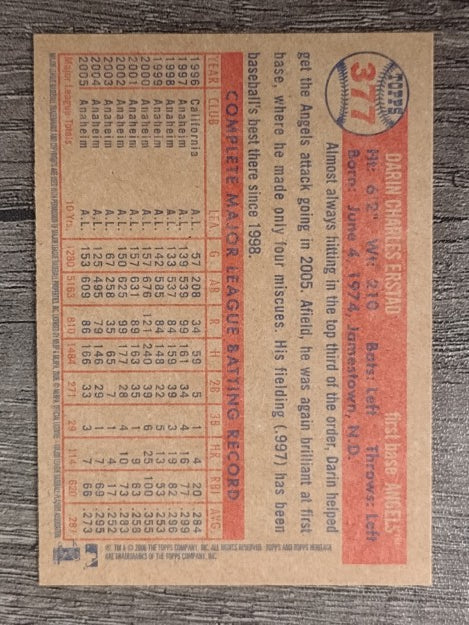 TOPPS
377
DARIN CHARLES ERSTAD first base ANGELS™
Ht: 6'2" Wt: 210 Bats: Left Throws: Left
Born: June 4, 1974, Jamestown, N.D.
Almost always hitting in the top third of the order, Darin helped
get the Angels attack going in 2005. Afield, he was again brilliant at first
base, where he made only four miscues. His fielding (.997) has been
baseball's best there since 1998.
COMPLETE MAJOR LEAGUE BATTING RECORD
YEAR CLUB LEA G AB R H 2B 3B HR RBI AVG
1996 California A.L. 57 208 34 59 5 1 4 20 .284
1997 Anaheim A.L. 139 539 99 161 34 4 16 77 .299
1998 Anaheim A.L. 133 537 84 159 39 3 19 82 .296
1999 Anaheim A.L. 142 585 84 148 22 5 13 53 .253
2000 Anaheim A.L. 157 676 121 240 39 6 25 100 .355
2001 Anaheim A.L. 157 631 89 163 35 1 9 63 .258
2002 Anaheim A.L. 150 625 99 177 28 4 10 73 .283
2003 Anaheim A.L. 67 258 35 65 7 1 4 17 .252
2004 Anaheim A.L. 125 495 79 146 29 1 7 69 .295
2005 Anaheim A.L. 153 609 86 166 33 3 7 66 .273
Major League Totals 10 Yrs. 1280 5163 810 1484 271 29 114 620 .287
® TM & © 2006 THE TOPPS COMPANY, INC. ALL RIGHTS RESERVED. TOPPS AND TOPPS HERITAGE
ARE TRADEMARKS OF THE TOPPS COMPANY, INC.